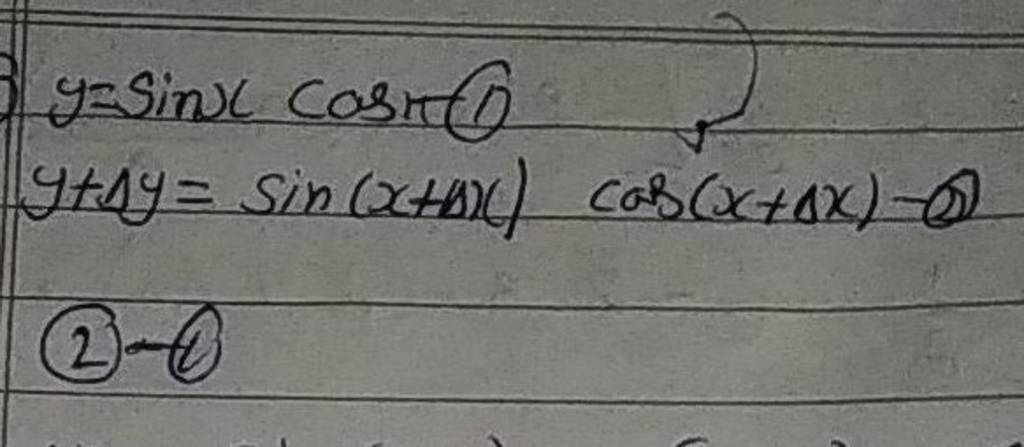 y=sinx cosx-①
y+Δy= sin(x+Δx) cos(x+Δx)-②
②-①